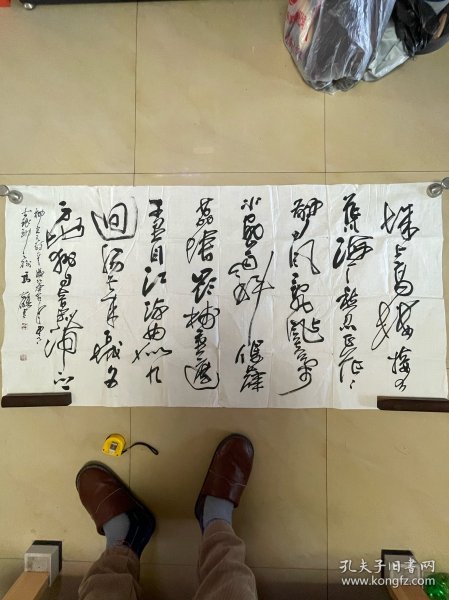 城上高樓接大
荒海天愁思正茫〻
驚風亂颭芙蓉
水密雨斜侵薜
荔墻嶺樹重遮
千里目江流曲似九
回腸共來百越文
身地猶自音書滯一
柳宗元
孔夫子旧书网
www.kongfz.com